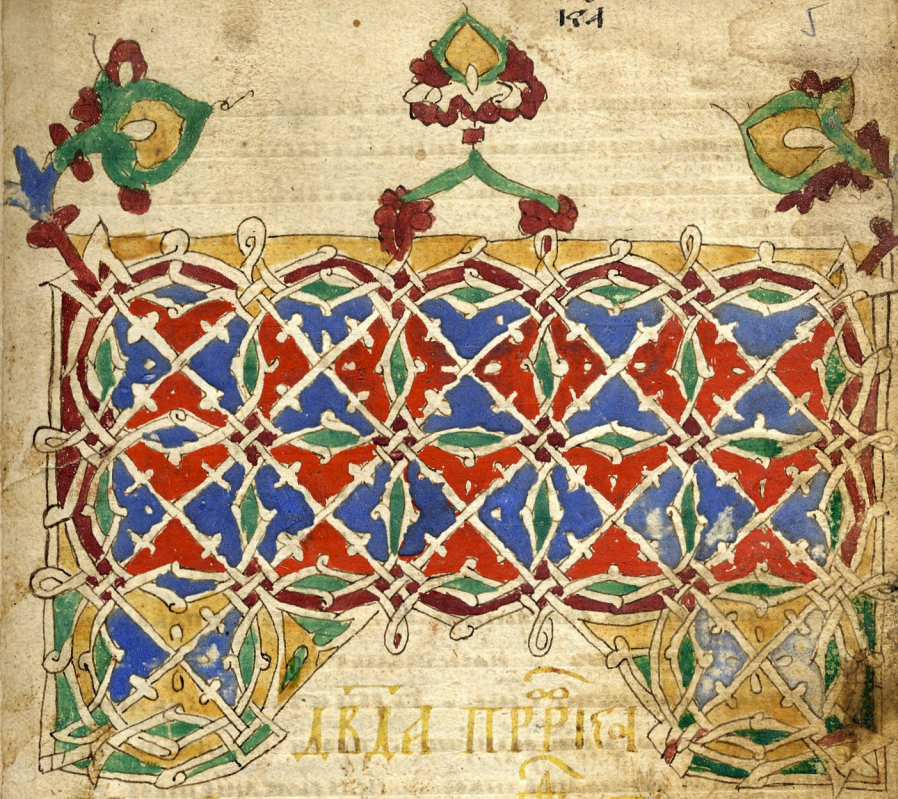 К҃А 5
ДВ҃ДА ПРР҃КА